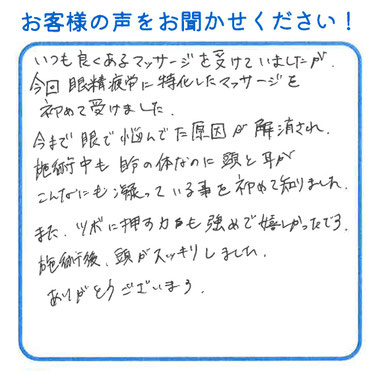 お客様の声をお聞かせください！
いつも良くあるマッサージを受けていましたが、
今回眼精疲労に特化したマッサージを
初めて受けました。
今まで眼で悩んでた原因が解消され、
施術中も自分の体なのに頭と耳が
こんなにもう凝っている事を初めて知りました。
また、ツボに押す力も強めで嬉しかったです。
施術後、頭がスッキリしました。
ありがとうございます。